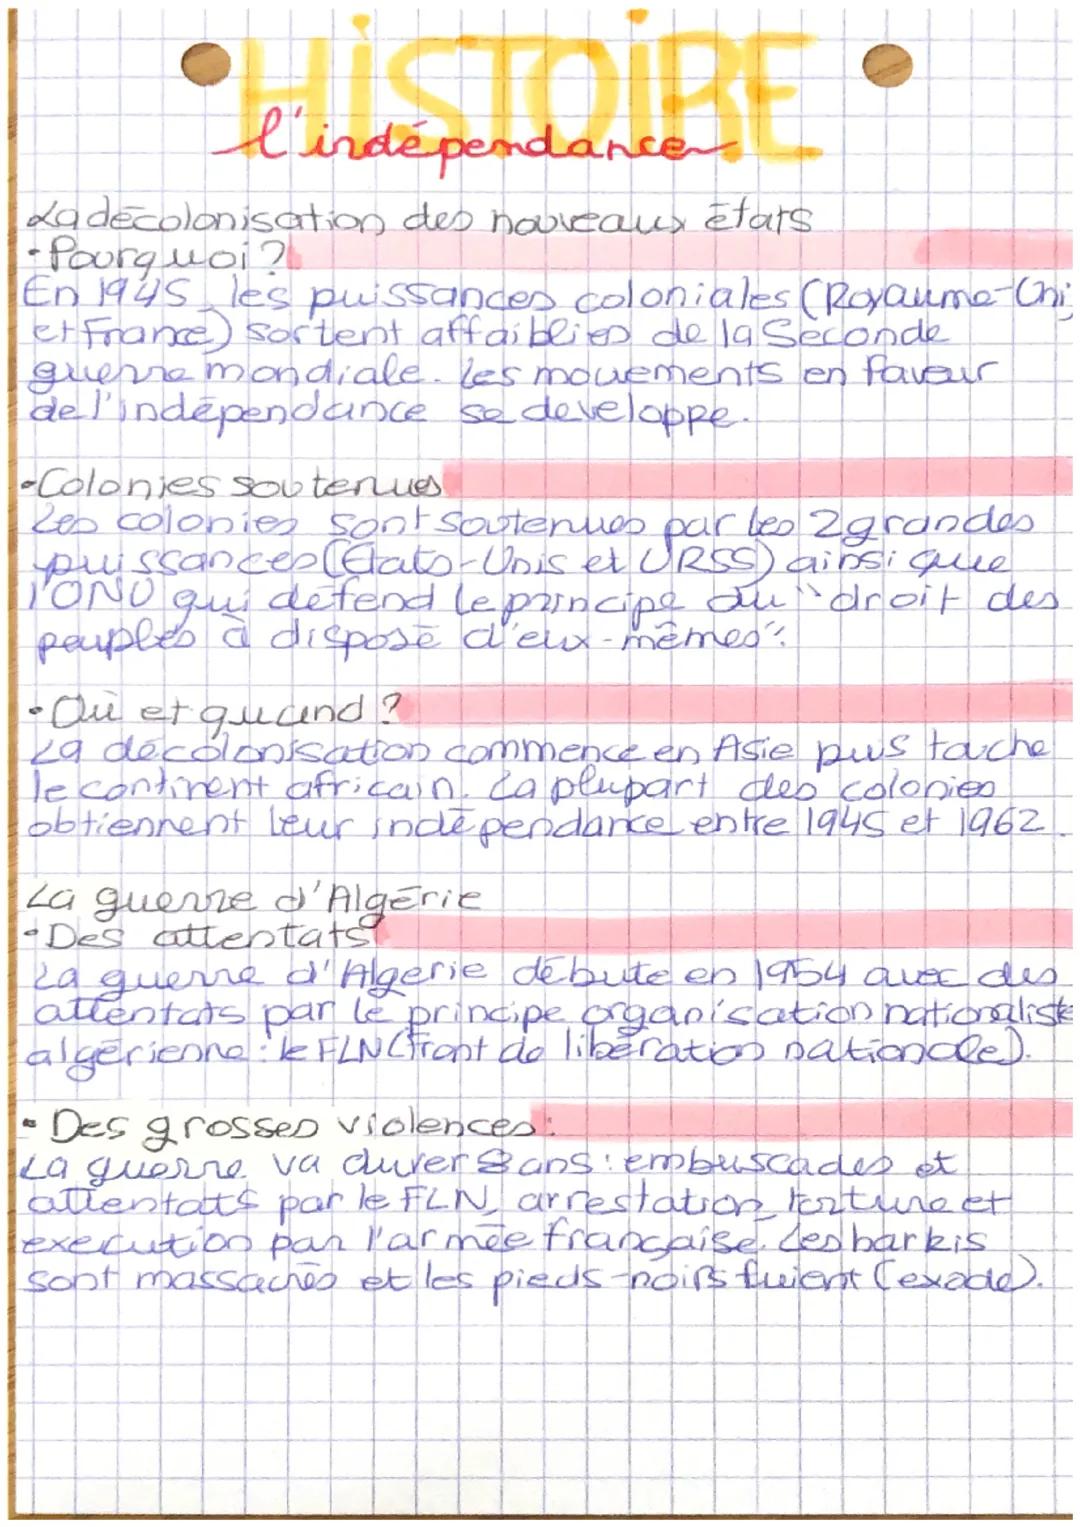 HISTOIRE
l'indépendance
La décolonisation des nouveaux états
• Pourquoi ?
En 1945, les puissances coloniales (Royaume-Uni
et France) sortent affaiblies de la Seconde
guerre mondiale. Les mouvements en faveur
de l'indépendance se developpe.
• Colonies soutenues
Les colonies sont soutenues par les 2 grandes
puissances (États-Unis et URSS) ainsi que
l'ONU qui défend le principe du "droit des
peuples à disposé d'eux-mêmes".
• Où et quand ?
La décolonisation commence en Asie puis touche
le continent africain. La plupart des colonies
obtiennent leur indépendance entre 1945 et 1962.
La guerre d'Algérie
• Des attentats
La guerre d'Algerie débute en 1954 avec des
attentats par le principe organisation nationaliste
algérienne : le FLN (Front de libération nationale).
• Des grosses violences :
La guerre va durer 8 ans : embuscades et
attentats par le FLN, arrestation, torture et
execution par l'armée française. Les harkis
sont massacrés et les pieds-noirs fuient (exode).